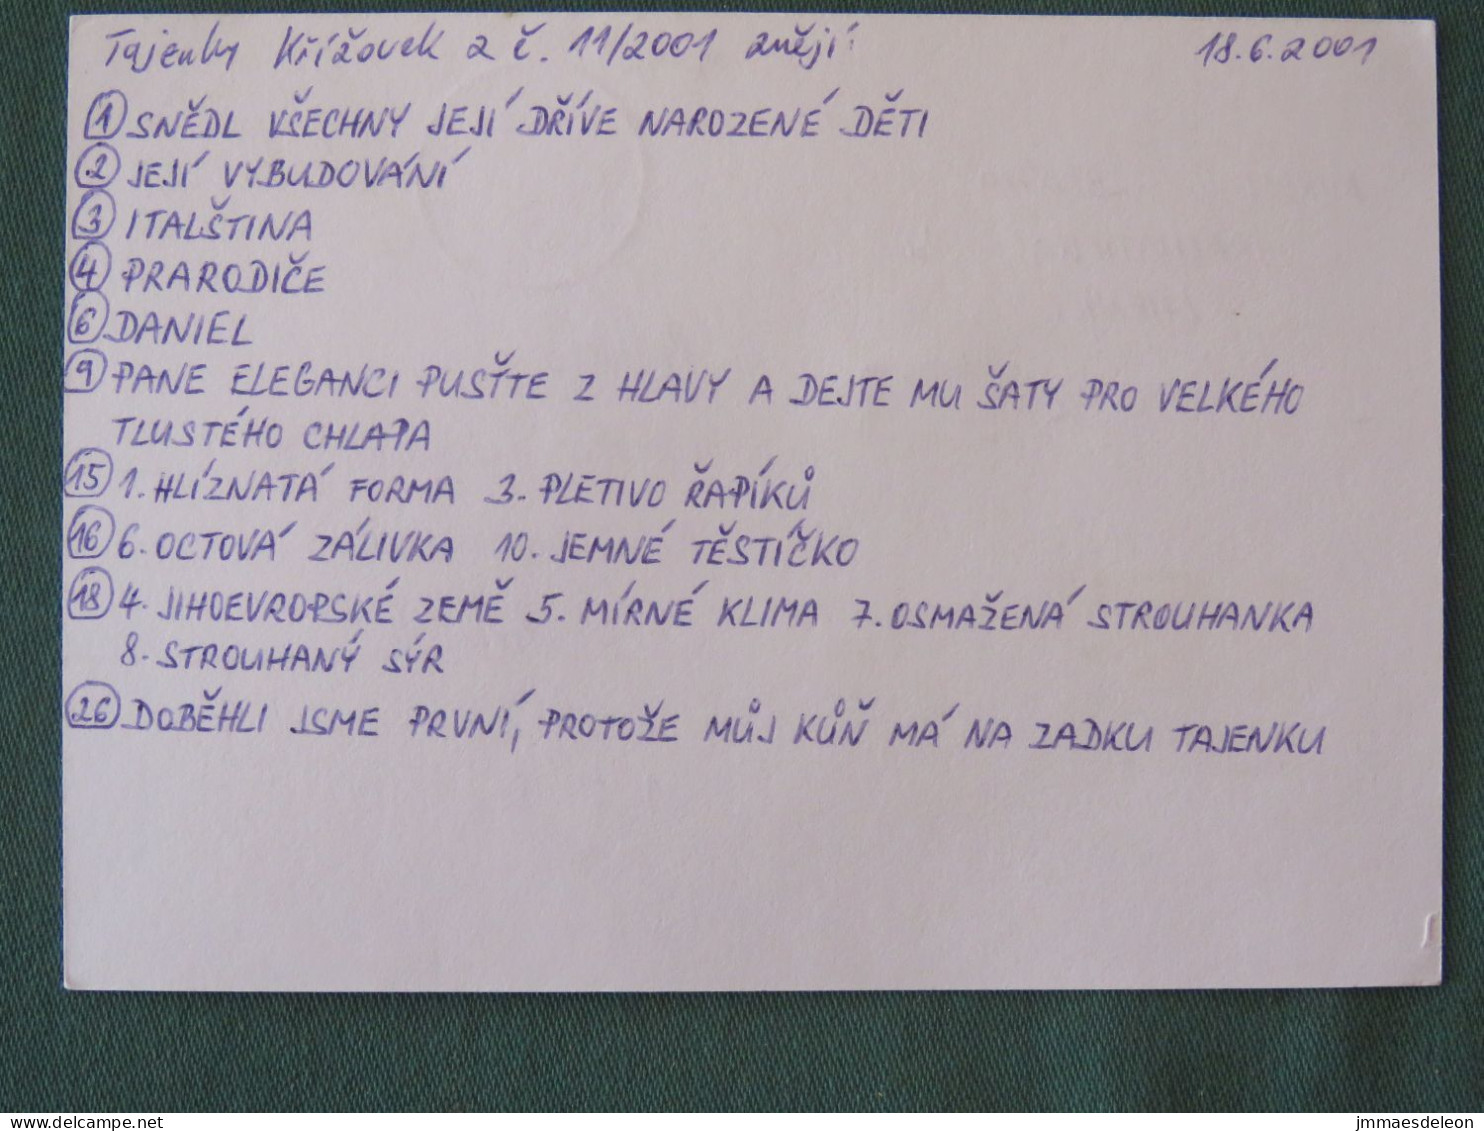 Tajenky Křížovek z č. 11/2001 znějí: 18.6.2001
1 SNĚDL VŠECHNY JEJÍ DŘÍVE NAROZENÉ DĚTI
2 JEJÍ VYBUDOVÁNÍ
3 ITALŠTINA
4 PRARODIČE
6 DANIEL
9 PANE ELEGANCI PUSŤTE Z HLAVY A DEJTE MU ŠATY PRO VELKÉHO
TLUSTÉHO CHLAPA
15 1. HLÍZNATÁ FORMA 3. PLETIVO ŘAPÍKŮ
16 6. OCTOVÁ ZÁLIVKA 10. JEMNÉ TĚSTÍČKO
18 4. JIHOEVROPSKÉ ZEMĚ 5. MÍRNÉ KLIMA 7. OSMAŽENÁ STROUHANKA
8. STROUHANÝ SÝR
26 DOBĚHLI JSME PRVNÍ, PROTOŽE MŮJ KŮŇ MÁ NA ZADKU TAJENKU
www.delcampe.net
jmmaesdeleon